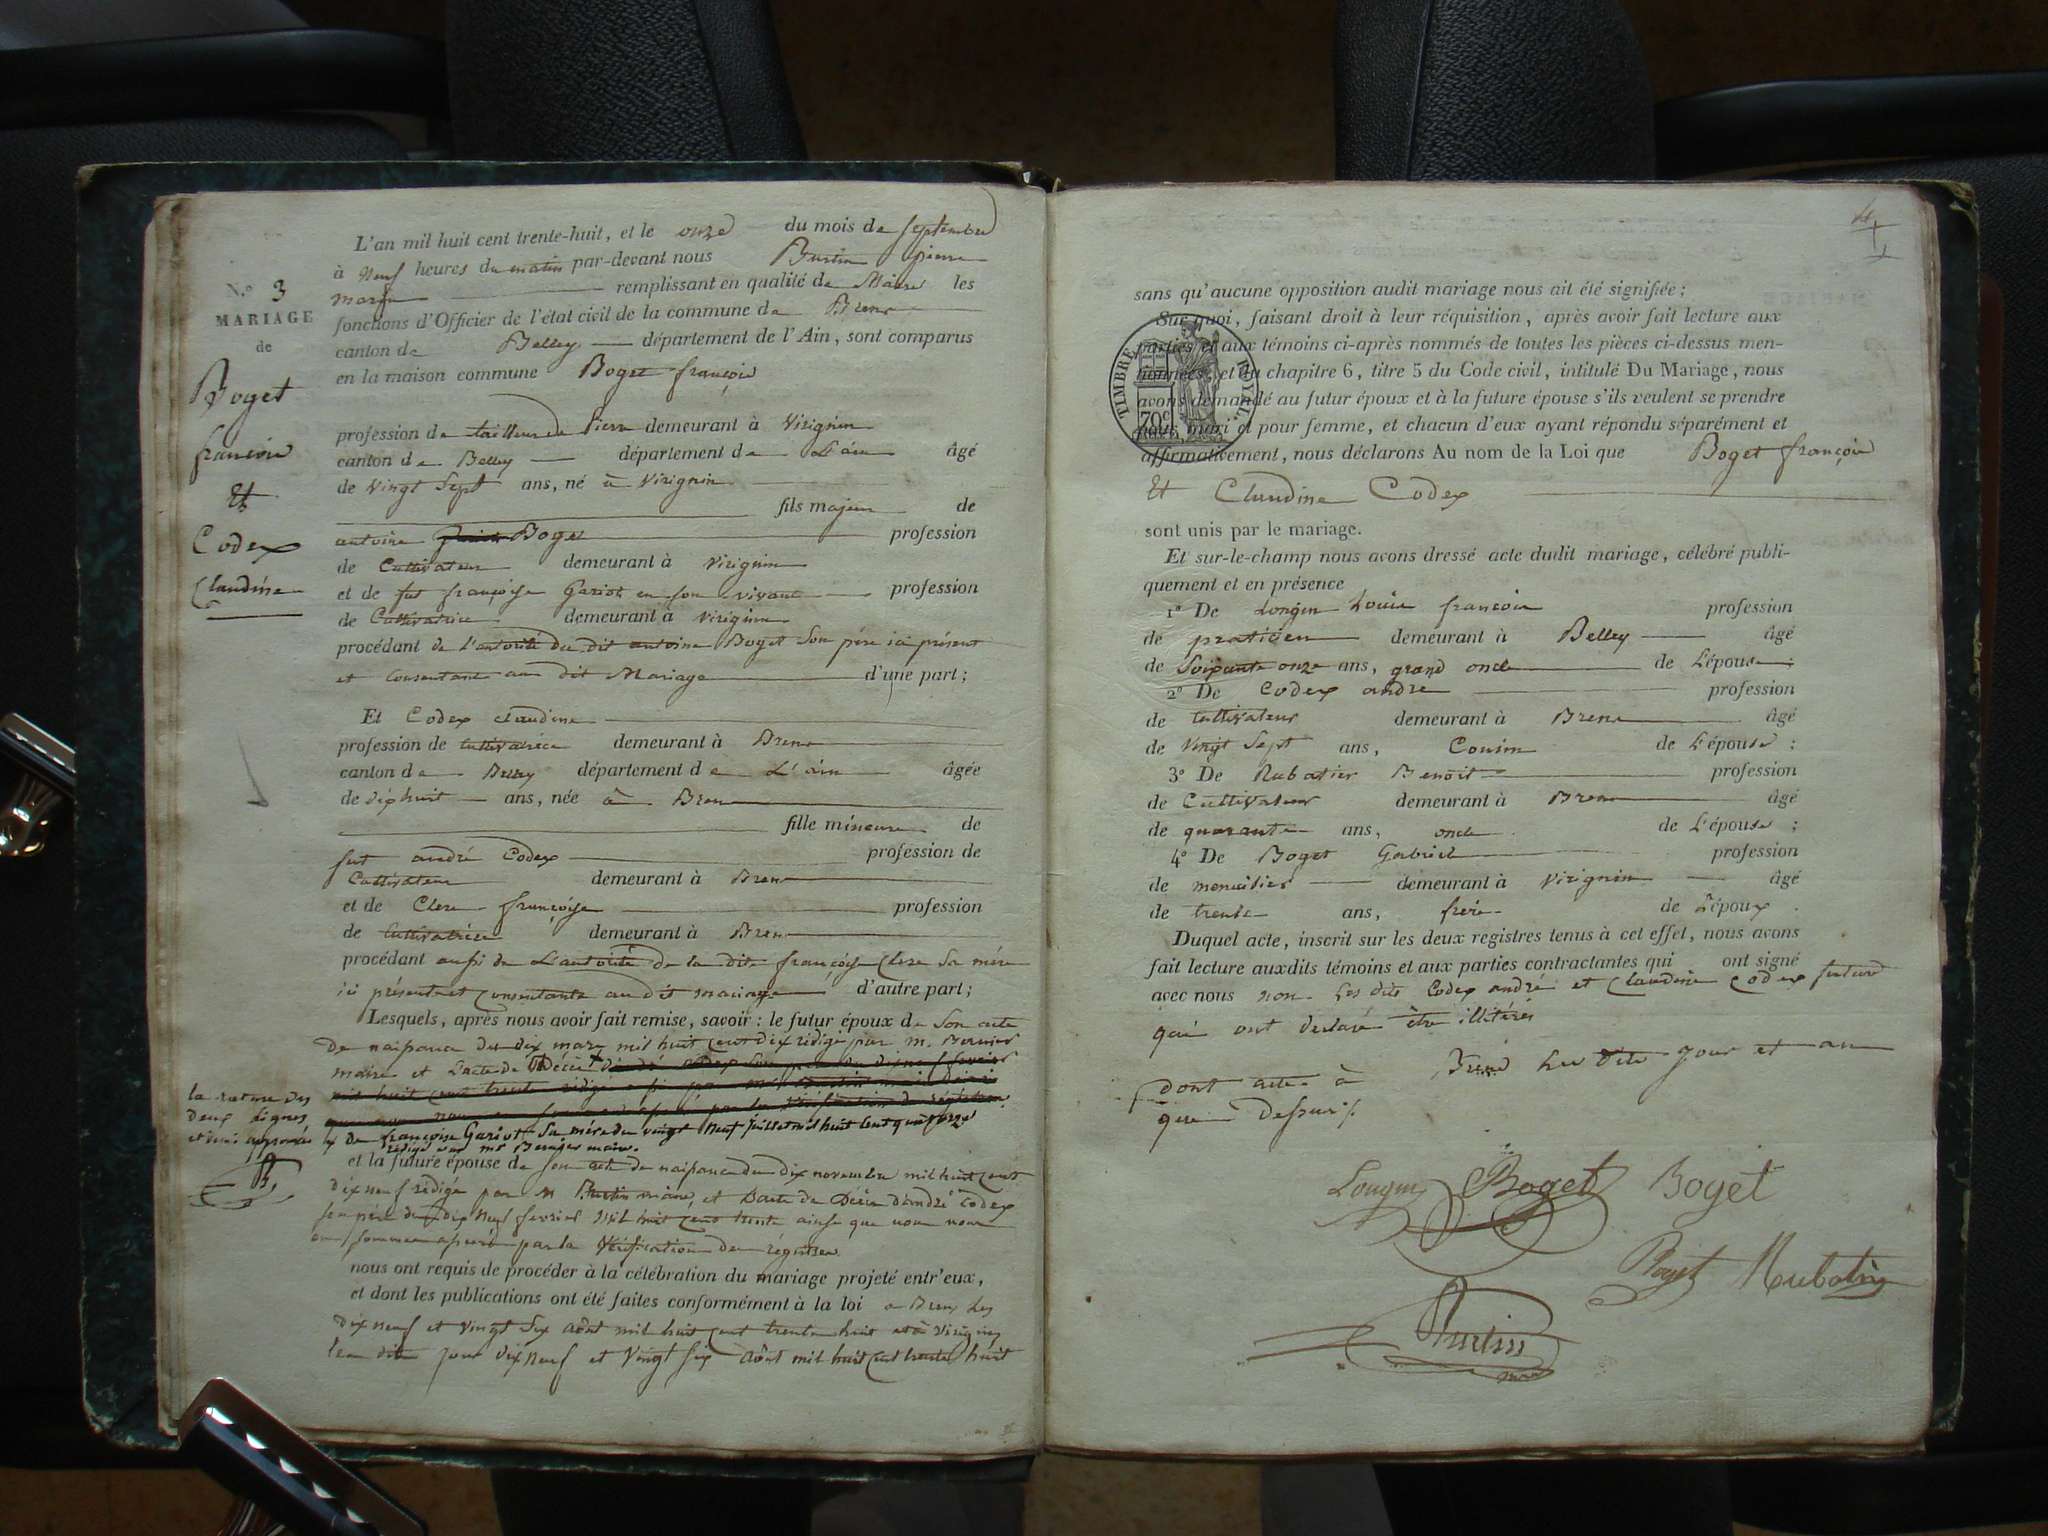 N.o 3
MARIAGE
de
Boget
françois
Et
Codex
Claudine
L'an mil huit cent trente-huit, et le onze du mois de septembre
à neuf heures du matin par-devant nous Burtin pierre
marie remplissant en qualité de Maire les
fonctions d'Officier de l'état civil de la commune de Brens
canton de Belley département de l'Ain, sont comparus
en la maison commune Boget françois
profession de tailleur de Pierre demeurant à Virignin
canton de Belley département de L'ain âgé
de vingt sept ans, né à Virignin
fils majeur de
antoine Boget profession
de Cultivateur demeurant à Virignin
et de fut françoise Gariot en son vivant profession
de Cultivatrice demeurant à Virignin
procédant de l'autorité du dit antoine Boget son père ici présent
et consentant au dit Mariage d'une part;
Et Codex claudine
profession de cultivatrice demeurant à Brens
canton de Belley département de L'ain âgée
de dix huit ans, née à Brens
fille mineure de
fut andré Codex profession de
Cultivateur demeurant à Brens
et de Clerc françoise profession
de cultivatrice demeurant à Brens
procédant aussi de L'autorité de la dite françoise Clerc sa mère
ici présente et consentante au dit mariage d'autre part;
Lesquels, après nous avoir fait remise, savoir: le futur époux de son acte
de naissance du dix mars mil huit cent dix rédigé par m. Bernier
maire et l'acte de Décès
la rature des
deux lignes
et demi approuvée
de françoise Gariot sa mère du vingt neuf juillet mil huit cent quinze
rédigé par mr Bernier maire.
et la future épouse de son acte de naissance du dix novembre mil huit cent
dix neuf rédigé par m Burtin maire, et L'acte de Décès d'andré Codex
son père du dix neuf fevrier mil huit cent trente ainsi que nous nous
en sommes assuré par la Vérification des régistres
nous ont requis de procéder à la célébration du mariage projeté entr'eux,
et dont les publications ont été faites conformément à la loi à Brens les
dix neuf et vingt six août mil huit cent trente huit et à Virignin
les dits jour dix neuf et vingt six août mil huit cent trente huit
sans qu'aucune opposition audit mariage nous ait été signifiée;
Sur quoi, faisant droit à leur réquisition, après avoir fait lecture aux
parties et aux témoins ci-après nommés de toutes les pièces ci-dessus men-
tionnées, et du chapitre 6, titre 5 du Code civil, intitulé Du Mariage, nous
avons demandé au futur époux et à la future épouse s'ils veulent se prendre
pour mari et pour femme, et chacun d'eux ayant répondu séparément et
affirmativement, nous déclarons Au nom de la Loi que Boget françois
TIMBRE ROYAL
70c
Et Claudine Codex
sont unis par le mariage.
Et sur-le-champ nous avons dressé acte dudit mariage, célébré publi-
quement et en présence
1o De Longin Louis françois profession
de praticien demeurant à Belley âgé
de Soixante onze ans, grand oncle de L'épouse;
2o De Codex andré profession
de Cultivateur demeurant à Brens âgé
de vingt sept ans, Cousin de L'épouse;
3o De Rubatier Benoit profession
de Cultivateur demeurant à Brens âgé
de quarante ans, oncle de L'épouse;
4o De Boget Gabriel profession
de menuisier demeurant à Virignin âgé
de trente ans, frère de L'époux.
Duquel acte, inscrit sur les deux registres tenus à cet effet, nous avons
fait lecture auxdits témoins et aux parties contractantes qui ont signé
avec nous non les dits Codex andré et Claudine Codex future
qui ont déclaré être illitérés
dont acte à Brens les dits jour et an
que dessus
Longin Boget Boget
Boget Rubatier
Burtin
maire